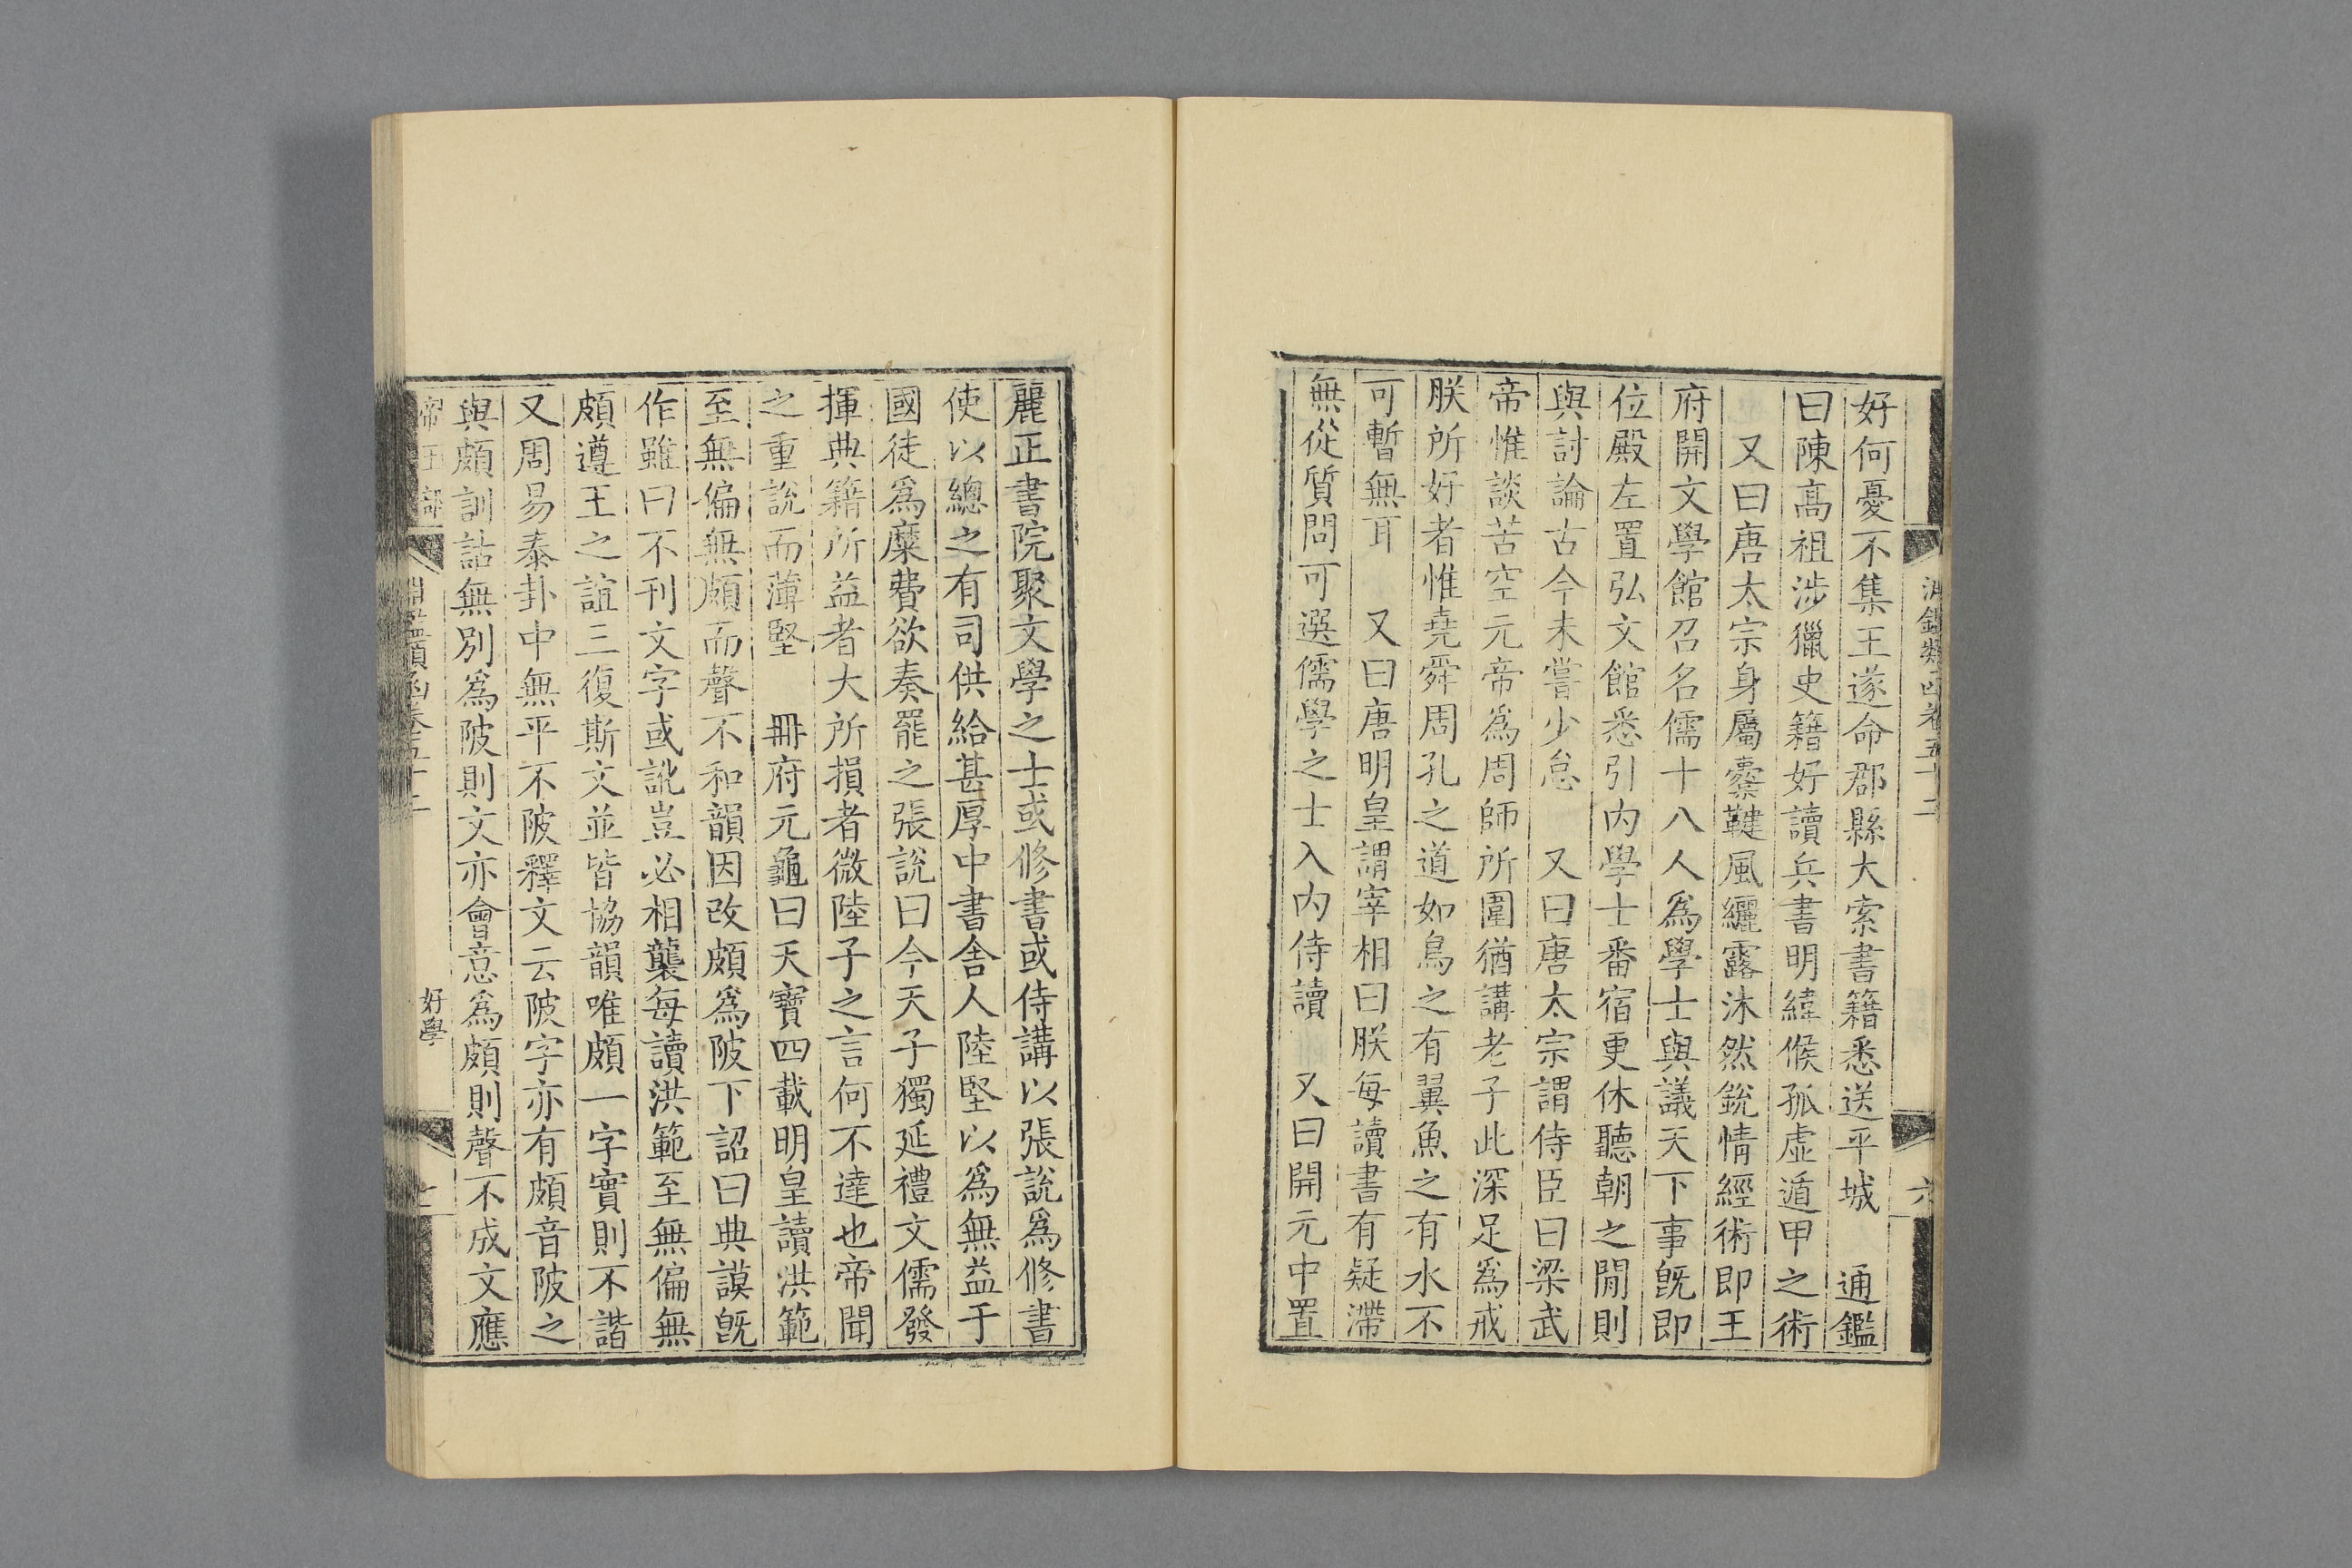 淵鑑類函卷五十二 六
好何憂不集王遂命郡縣大索書籍悉送平城 通鑑
曰陳高祖涉獵史籍好讀兵書明緯候孤虛遁甲之術
又曰唐太宗身屬櫜鞬風纚露沐然銳情經術即王
府開文學館召名儒十八人爲學士與議天下事旣即
位殿左置弘文館悉引内學士番宿更休聽朝之閒則
與討論古今未嘗少怠 又曰唐太宗謂侍臣曰梁武
帝惟談苦空元帝爲周師所圍猶講老子此深足爲戒
朕所好者惟堯舜周孔之道如鳥之有翼魚之有水不
可暫無耳 又曰唐明皇謂宰相曰朕每讀書有疑滯
無從質問可選儒學之士入内侍讀 又曰開元中置
麗正書院聚文學之士或修書或侍講以張說爲修書
使以總之有司供給甚厚中書舍人陸堅以爲無益于
國徒爲糜費欲奏罷之張說曰今天子獨延禮文儒發
揮典籍所益者大所損者微陸子之言何不達也帝聞
之重說而薄堅 冊府元龜曰天寶四載明皇讀洪範
至無偏無頗而聲不和韻因改頗爲陂下詔曰典謨旣
作雖曰不刊文字或訛豈必相襲每讀洪範至無偏無
頗遵王之誼三復斯文並皆協韻唯頗一字實則不諧
又周易泰卦中無平不陂釋文云陂字亦有頗音陂之
與頗訓詁無別爲陂則文亦會意爲頗則聲不成文應
帝王部 淵鑑類函卷五十二 好學 七